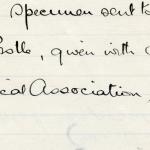 specimen sent to
, given with
ical Association,